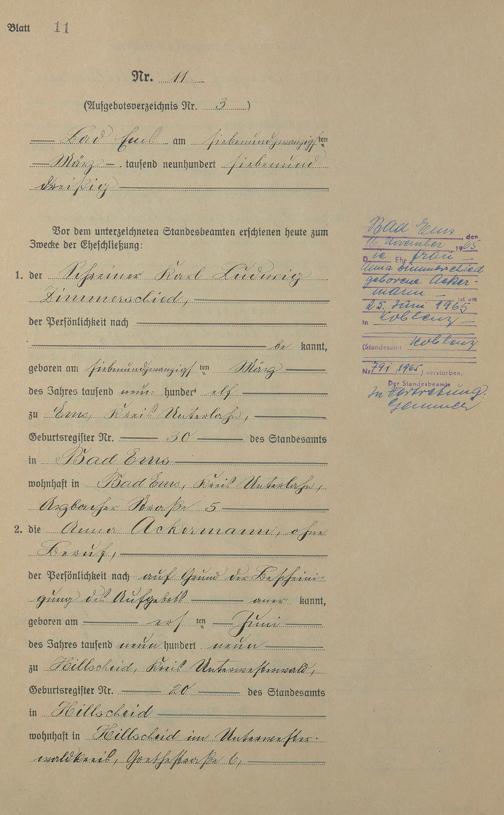 Blatt 11
Nr. 11
(Aufgebotsverzeichnis Nr. 3)
Bad Ems am siebenundzwanzigsten
März tausend neunhundert siebenund
dreißig
Vor dem unterzeichneten Standesbeamten erschienen heute zum
Zwecke der Eheschließung:
1. der Schreiner Karl Ludwig
Zimmerschied,
der Persönlichkeit nach
be kannt,
geboren am siebenundzwanzigsten März
des Jahres tausend neun hundert elf
zu Ems, Kreis Unterlahn,
Geburtsregister Nr. 50 des Standesamts
in Bad Ems
wohnhaft in Bad Ems, Kreis Unterlahn,
Arzbacher Straße 5
2. die Anna Ackermann, ohne
Beruf,
der Persönlichkeit nach auf Grund der Bescheini-
gung des Aufgebots aner kannt,
geboren am ersten Juni
des Jahres tausend neun hundert neun
zu Hillscheid, Kreis Unterwesterwald,
Geburtsregister Nr. 20 des Standesamts
in Hillscheid
wohnhaft in Hillscheid im Unterwester-
waldkreis, Goethestraße 6,
Bad Ems den
11. November 1965
Die Ehefrau
Anna Zimmerschied
geborene Acker-
mann ist am
25. Juni 1965
in Koblenz
(Standesamt Koblenz
Nr. 791/1965) verstorben.
Der Standesbeamte
In Vertretung